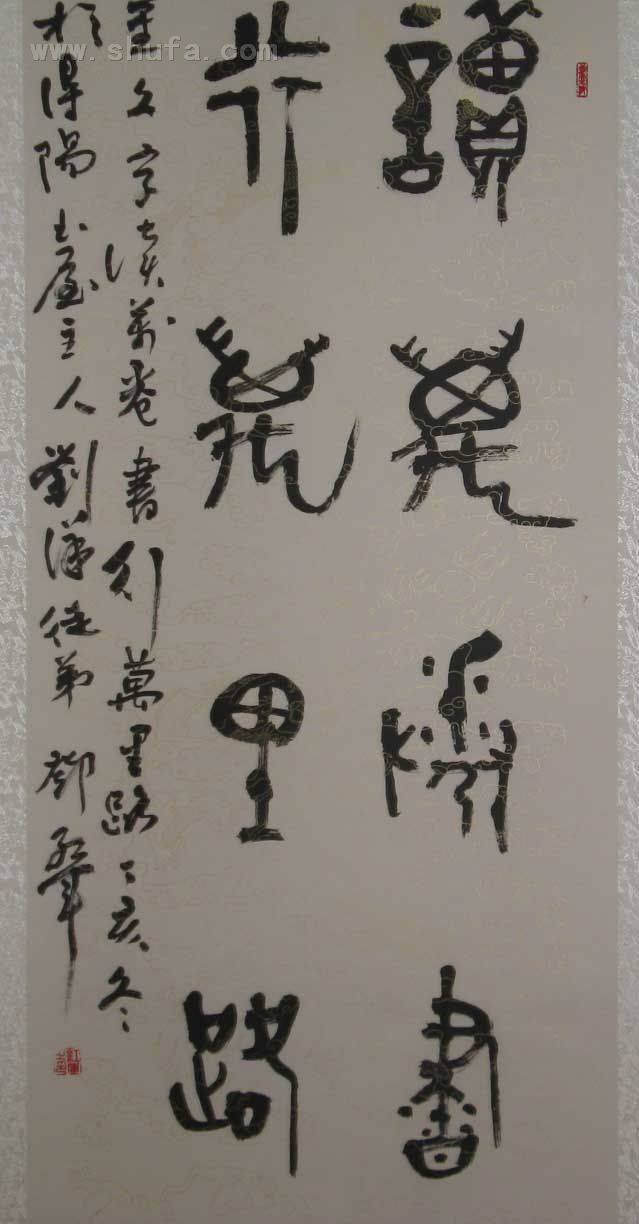 www.shufa.com
讀萬卷書
行萬里路
文字讀萬卷書行萬里路丁亥冬
於陽屋主人劉漢徒弟鄧